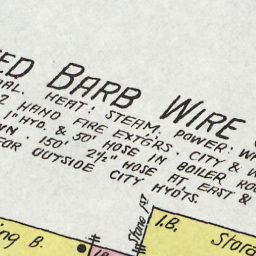 ED BARB WIRE
AL. HEAT: STEAM. POWER: W
2 HAND FIRE EXTGRS. CITY & W
1" HYD. & 50' HOSE IN BOILER RO
WN. 150' 2½" HOSE AT EAST &
FOR OUTSIDE CITY HYD'TS.
Stone Af
1.B.
Stora
ng B.